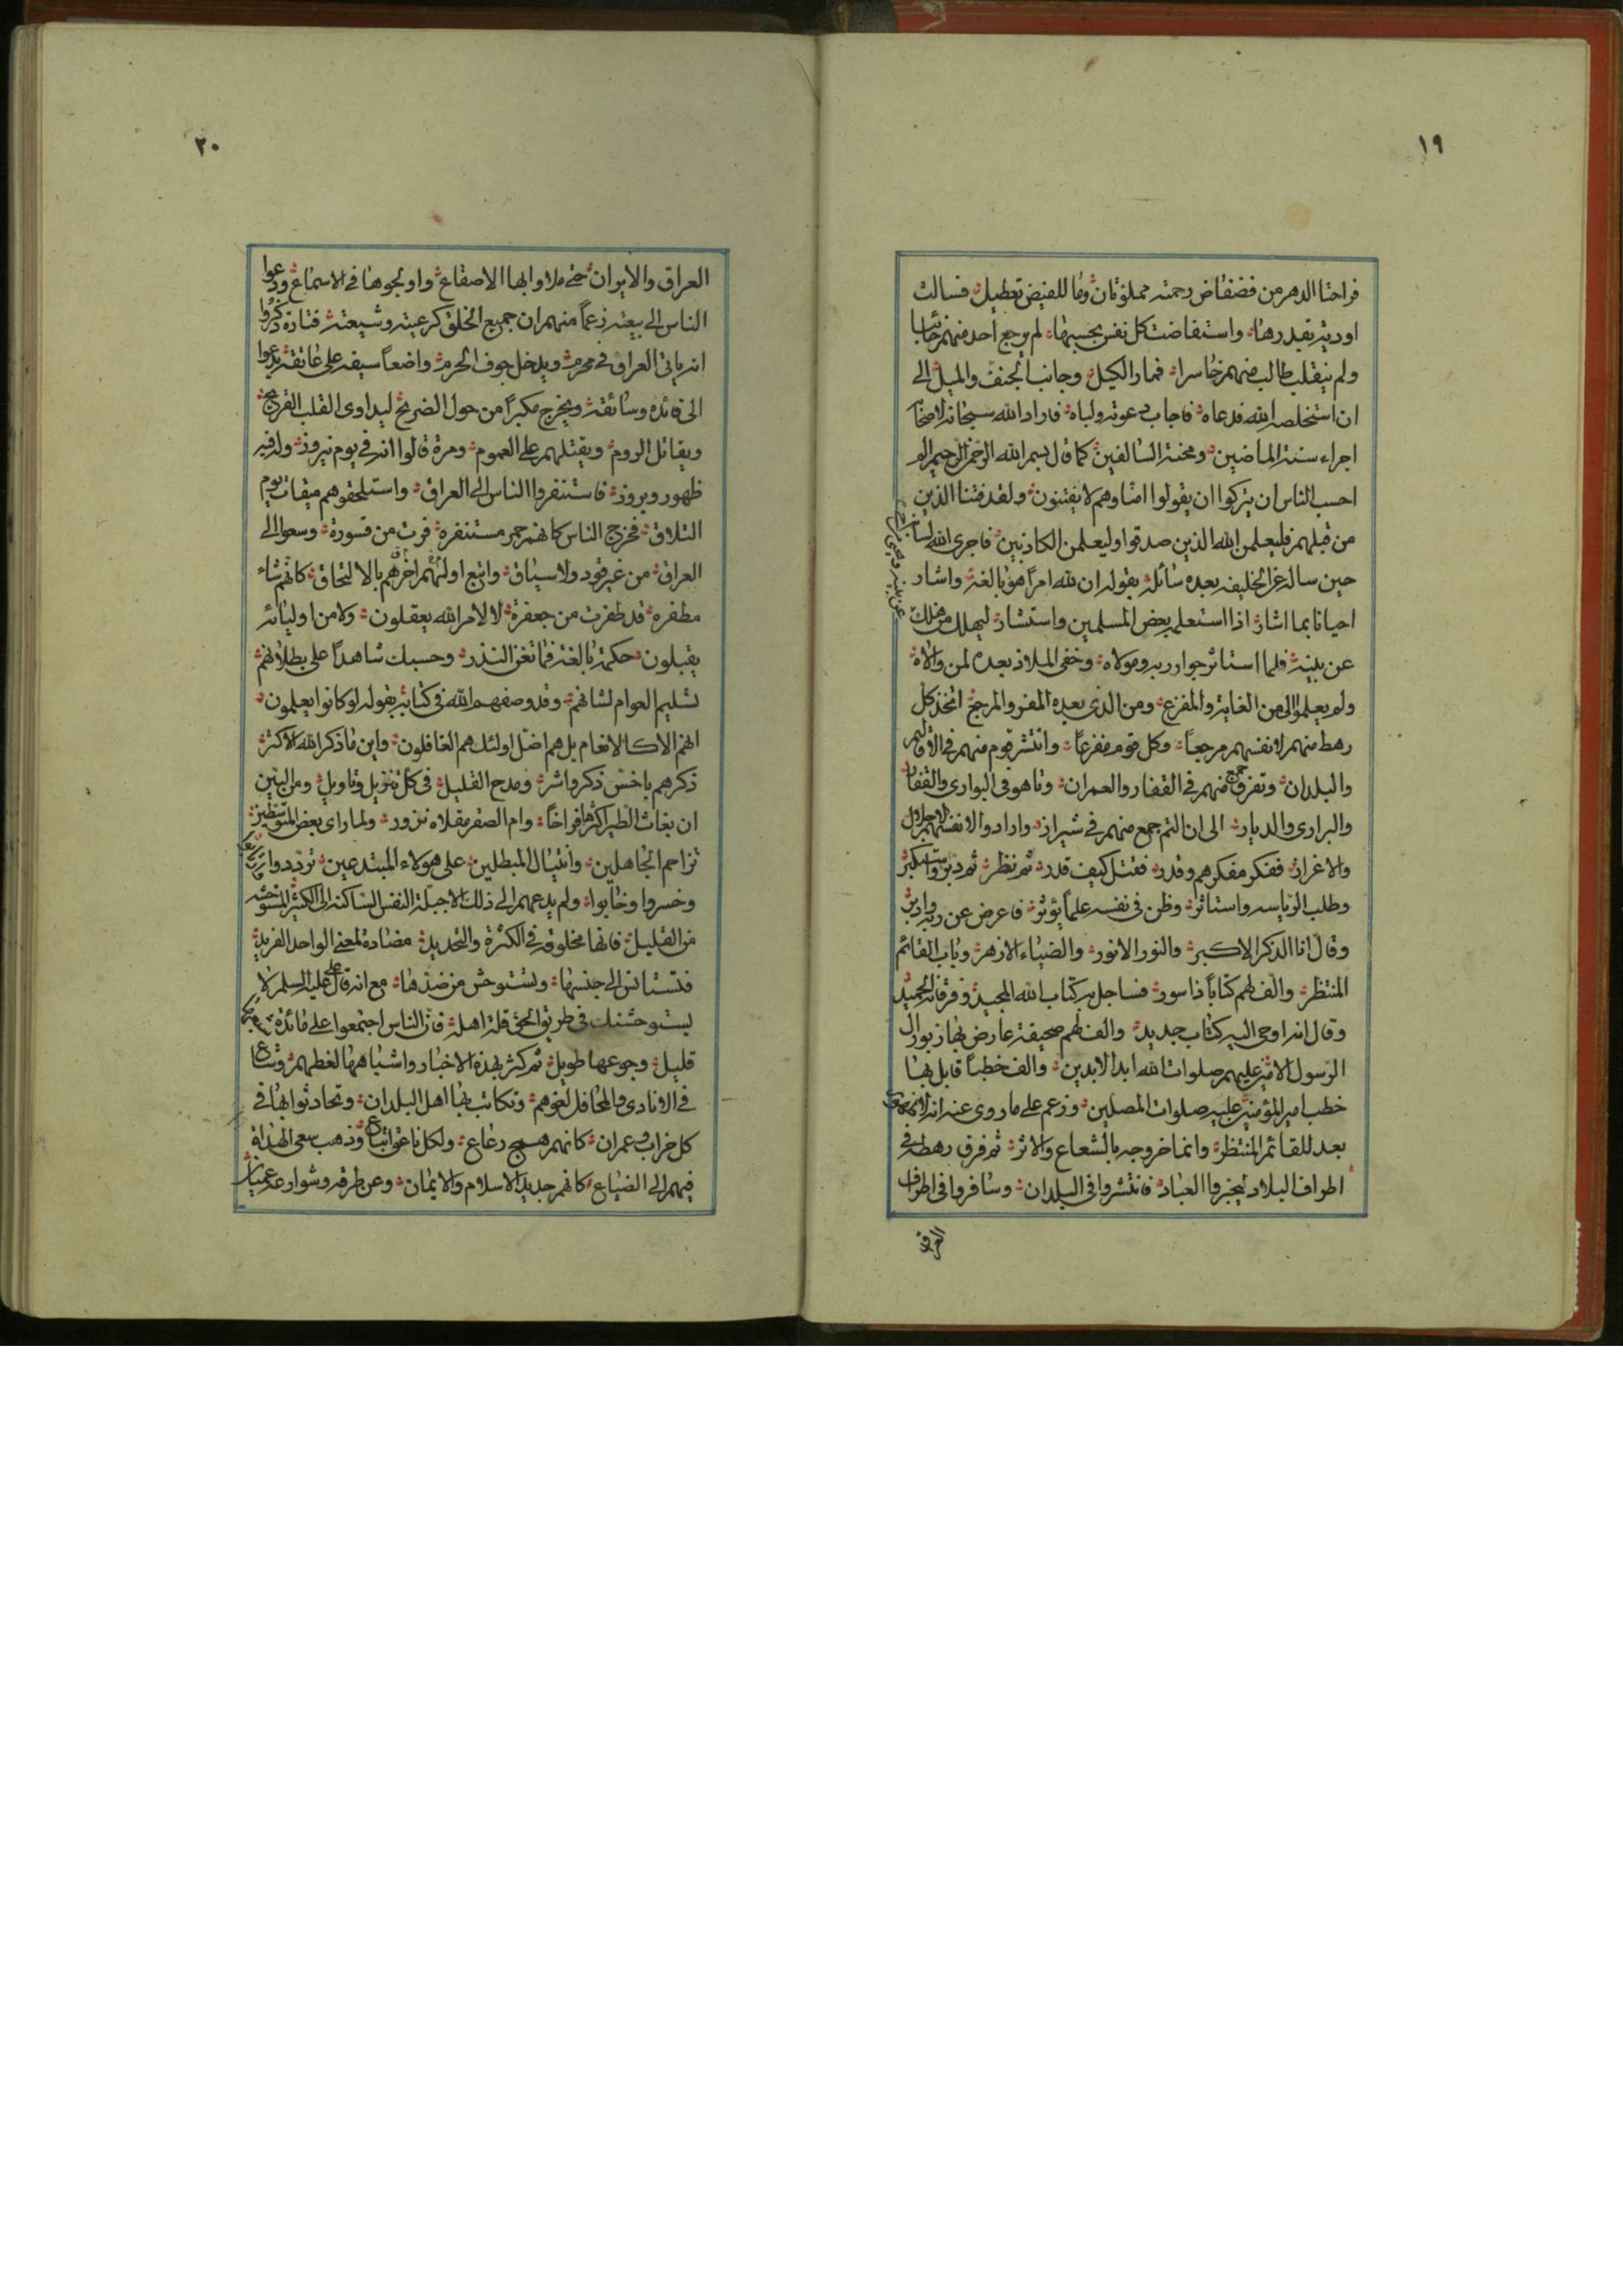 ١٩
فراحتا الدهر من فضفاض رحمته مملوتان وما للفيض تعطيل فسالت
اودية بقدرها واستفاضت كل نفس بحسبها لم يرجع احد منهم خائبا
ولم ينقلب طالب منهم خاسرا فمار الكيل وجانب الجنف والميل الى
ان استخلصه الله فدعاه فاجاب دعوته ولباه فاراد الله سبحانه
اجراء سنة الماضين ومحنة السالفين كما قال بسم الله الرحمن الرحيم الم
احسب الناس ان يتركوا ان يقولوا امنا وهم لا يفتنون ولقد فتنا الذين
من قبلهم فليعلمن الله الذين صدقوا وليعلمن الكاذبين فاجرى الله لسانه
حين ساله عن الخليفه بعده سائل بقوله ان لله امرا هو بالغه واشار
احيانا بما اشار اذا استعلم بعض المسلمين واستشار ليهلك من هلك
عن بينة ويحيى من حي عن بينة
عن بينة فلما استاثر جوار ربه ومولاه وخفى الملاذ بعده لمن والاه
ولم يعلموا الى من الغاية والمفزع ومن الذى بعده المفر والمرجع اتخذ كل
رهط منهم لانفسهم مرجعا وكل قوم مفزعا وانتشر قوم منهم في الاقاليم
والبلدان وتفرق جمع منهم في القفار والعمران وتاهو في البوارى والقفار
والبرارى والديار الى ان التم جمع منهم في شيراز وارادوا لانفسهم الاجلال
والاغراز ففكر مفكرهم وقدر فقتل كيف قدر ثم نظر ثم دبر واستكبر
وطلب الرياسه واستاثر وظن في نفسه علما يؤثر فاعرض عن ربه وادبر
وقال انا الذكر الاكبر والنور الانور والضياء الازهر وباب القائم
المنتظر والف لهم كتابا ذا سور فساجل به كتاب الله المجيد وفرقانه الحميد
وقال انه اوحى اليه كتاب جديد والف لهم صحيفة عارض بها زبور ال
الرسول الامين عليهم صلوات الله ابد الابدين والف خطبا قابل بها
خطب امير المؤمنين عليه صلوات المصلين وزعم على ما روى عنه انه
بعد للقائم المنتظر وانما خروجه بالشعاع والاثر ثم فرق رهطه في
اطراف البلاد ليخبروا العباد فانتشروا في البلدان وسافروا في اطراف
العراق
٢٠
العراق والايوان حتى ملاوا بها الاصقاع واولجوها في الاسماع ودعوا
الناس الى بيعته زعما منهم ان جميع الخلق كرعيته وشيعته فتارة ذكروا
انه ياتي العراق في محرم ويدخل جوف الحرم واضعا سيفه على عاتقه يدعوا
الى قائده وسائقه ويخرج مكبرا من حول الضريح ليداوى القلب القريح
ويقاتل الروم ويقتلهم على العموم ومرة قالوا انه في يوم نيروز وله فيه
ظهور وبروز فاستنفروا الناس الى العراق واستلحقوهم ميقات يوم
التلاق فخرج الناس كانهم حمر مستنفرة فرت من قسورة وسعوا الى
العراق من غير قود ولا سياق واتبع اولهم اخرهم بالالتحاق كانهم شاء
مطفرة قد طفرت من جعفرة لا لامر الله يعقلون ولا من اوليائه
يقبلون حكمة بالغة فما تغن النذر وحسبك شاهدا على بطلانهم
تسليم العوام لشانهم وقد وصفهم الله في كتابه بقوله لو كانوا يعلمون
انهم الا كالانعام بل هم اضل اولئك هم الغافلون واين ما ذكر الله الاكثر
ذكرهم باخس ذكر واشر ومدح القليل في كل تنزيل وتاويل ومن البين
ان بغاث الطير اكثرها فراخا وام الصقر مقلاه نزور ولما راى بعض
تزاحم الجاهلين وانثيال المبطلين على هؤلاء المبتدعين ترددوا
وخسروا وخابوا ولم يدعهم الى ذلك الا جبلة النفس الساكنة الى الكثير المستوحشه
من القليل فانها مخلوقة في الكثرة والتحديد مضادة لمعنى الواحد الفريد
فتستانس الى جنسها وتستوحش من ضدها مع انه قال على عليه السلم لا
يستوحشنك في طريق الحق قلة اهله فان الناس اجتمعوا على مائدة شبعها
قليل وجوعها طويل ثم كثر بهذه الاخبار واشباهها لغطهم وشاع
في الانادى والمحافل لغوهم وتكاتب بها اهل البلدان وتحادثوا بها في
كل خراب وعمران كانهم همج رعاع ولكل ناعق اتباع وذهب سعى الهداة
فيهم الى الضياع كانهم جديد الاسلام والايمان وعن طرقه وشوارعه عميان